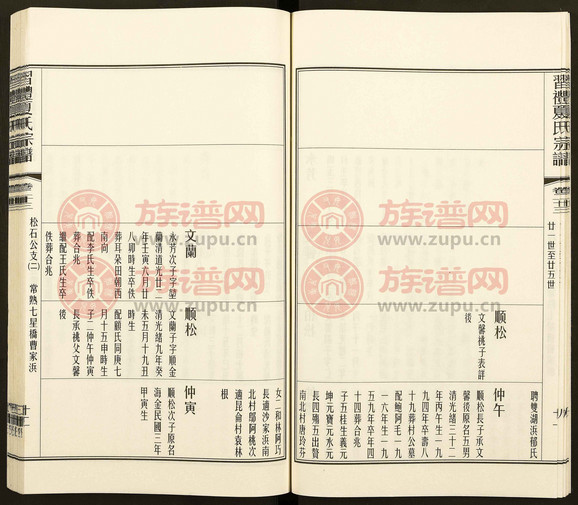 習禮夏氏宗譜
廿一世至廿五世
順松
文馨桃子表詳
後
仲午
順松長子承文
馨後原名五男
清光緒三十二
年丙午生一九
九四年卒壽八
十九葬村公墓
配鮑阿毛一九
一六年生一九
五九年卒年四
十四葬合兆
子五桂生義元
坤元寶元水元
長四殤五出贅
南北村唐玲芬
聘雙湖浜郁氏
女二和林阿巧
長適沙家浜南
北村鄔阿桃次
適昆侖村袁林
根
文蘭
永芳次子字堃
蘭清道光廿二
年壬寅六月廿
八卯時生卒佚
葬耳朵田朝西
南向
配李氏生卒佚
葬合兆
繼配王氏生卒
佚葬合兆
順松
文蘭子字順金
清光緒九年癸
未五月十九丑
時生
配顧氏同庚七
月十五申時生
子二仲午仲寅
長承祧父文馨
後
仲寅
順松次子原名
海金民國三年
甲寅生
習禮夏氏宗譜
松石公支(二)
常熟七星橋曹家浜
族谱网
www.zupu.cn
族谱网
www.zupu.cn
族谱网
www.zupu.cn
族谱网
www.zupu.cn